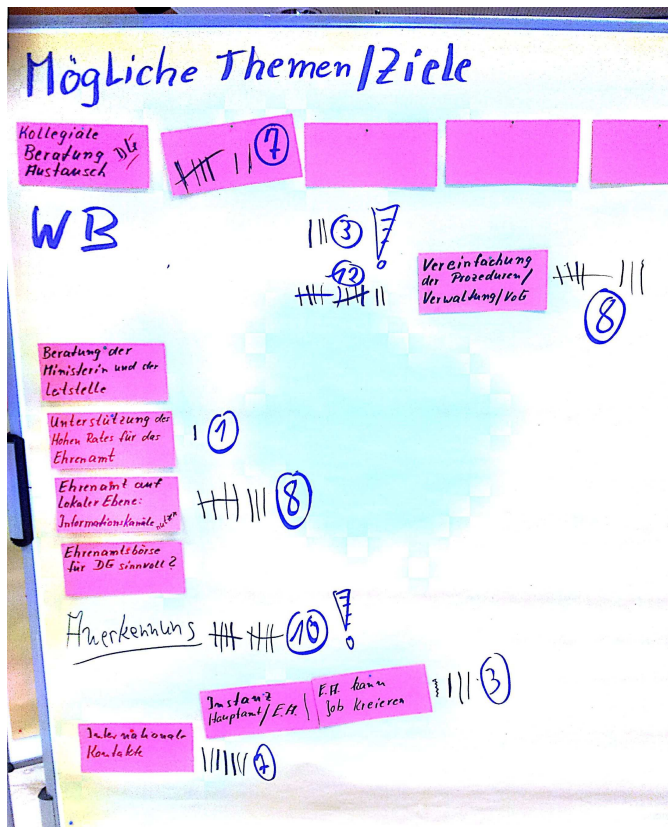 Mögliche Themen/Ziele
Kollegiale
Beratung DG
Austausch
7
WB
3
12
Vereinfachung
der Prozeduren/
Verwaltung/VoG
8
Beratung der
Ministerin und der
Leitstelle
Unterstützung des
Hohen Rates für das
Ehrenamt
1
Ehrenamt auf
Lokaler Ebene:
Informationskanäle nutzen
8
Ehrenamtsbörse
für DG sinnvoll?
Anerkennung
10
!
Instanz
Hauptamt/E.A.
E.A. kann
Job kreieren
3
Internationale
Kontakte
7